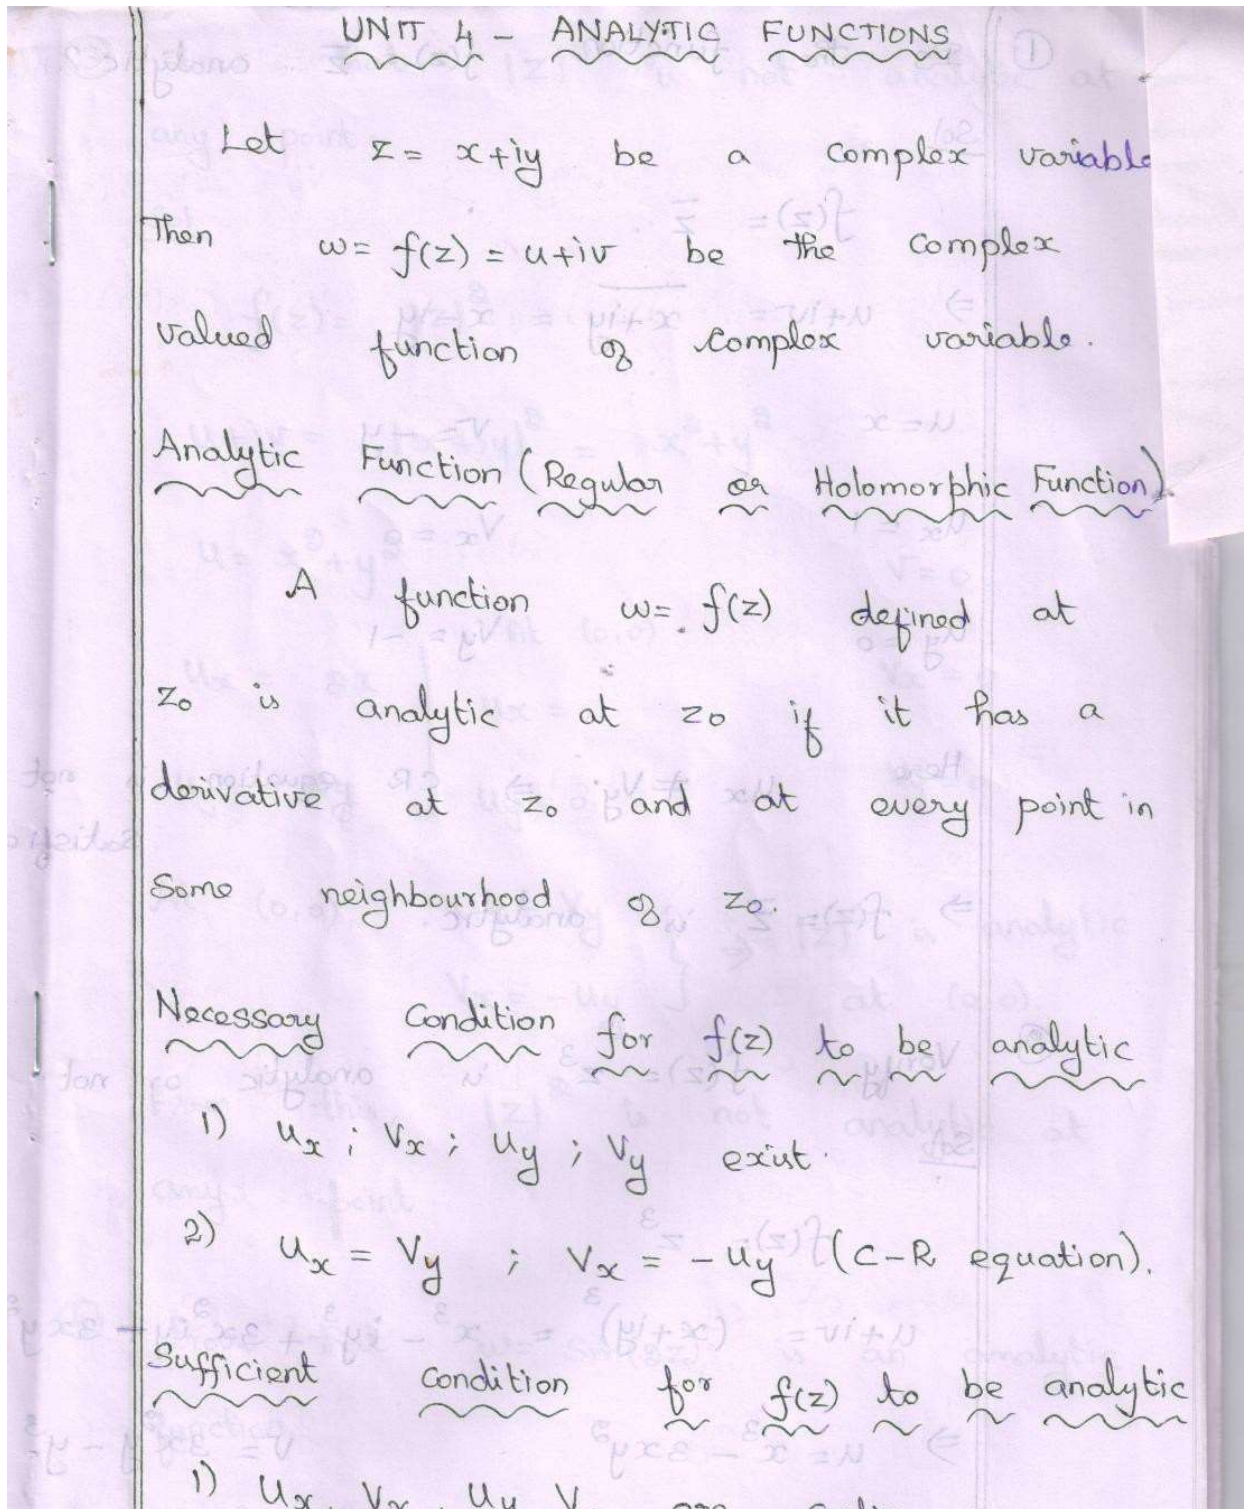 UNIT 4 - ANALYTIC FUNCTIONS
Let z = x+iy be a complex variable
Then w = f(z) = u+iv be the complex
valued function of complex variable.
Analytic Function (Regular or Holomorphic Function).
A function w = f(z) defined at
z₀ is analytic at z₀ if it has a
derivative at z₀ and at every point in
Some neighbourhood of z₀.
Necessary Condition for f(z) to be analytic
1) uₓ ; vₓ ; u_y ; v_y exist.
2) uₓ = v_y ; vₓ = -u_y (C-R equation).
Sufficient condition for f(z) to be analytic
1) uₓ, vₓ, u_y